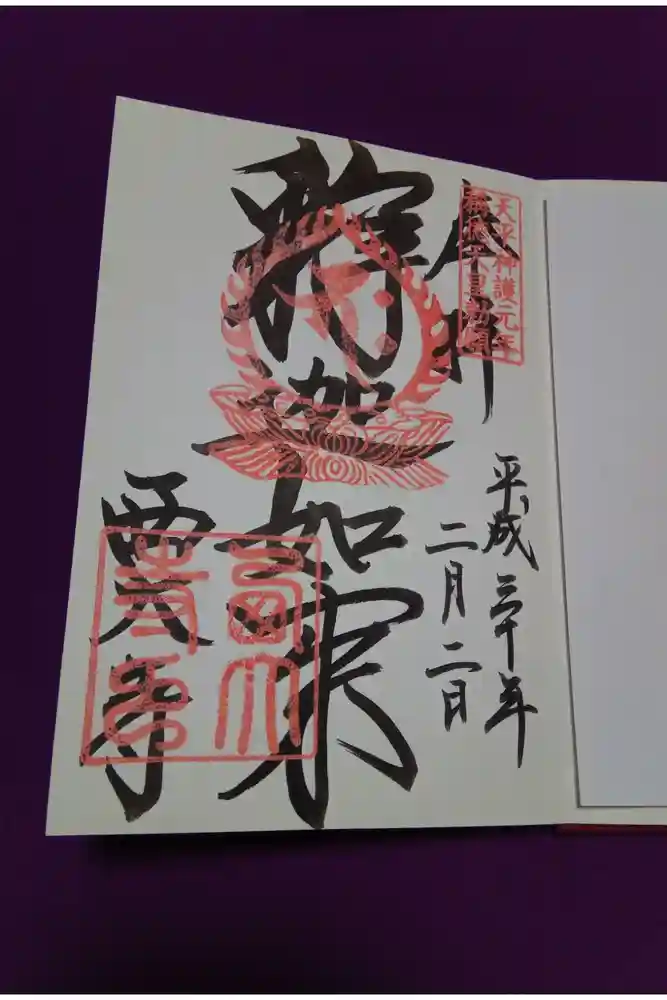 奉拝
天平神護元年
稱徳天皇勅願
平成三十年
二月二日
釋迦如来
西大寺